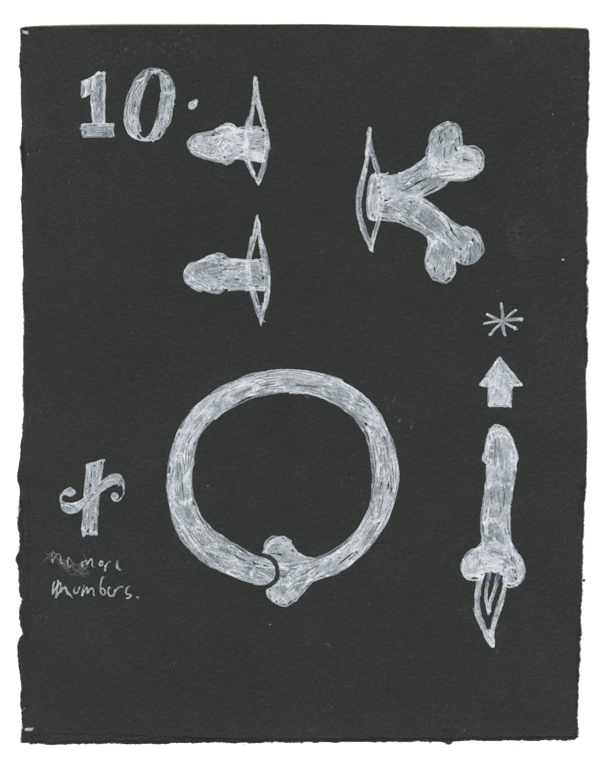 10.
no more
numbers.